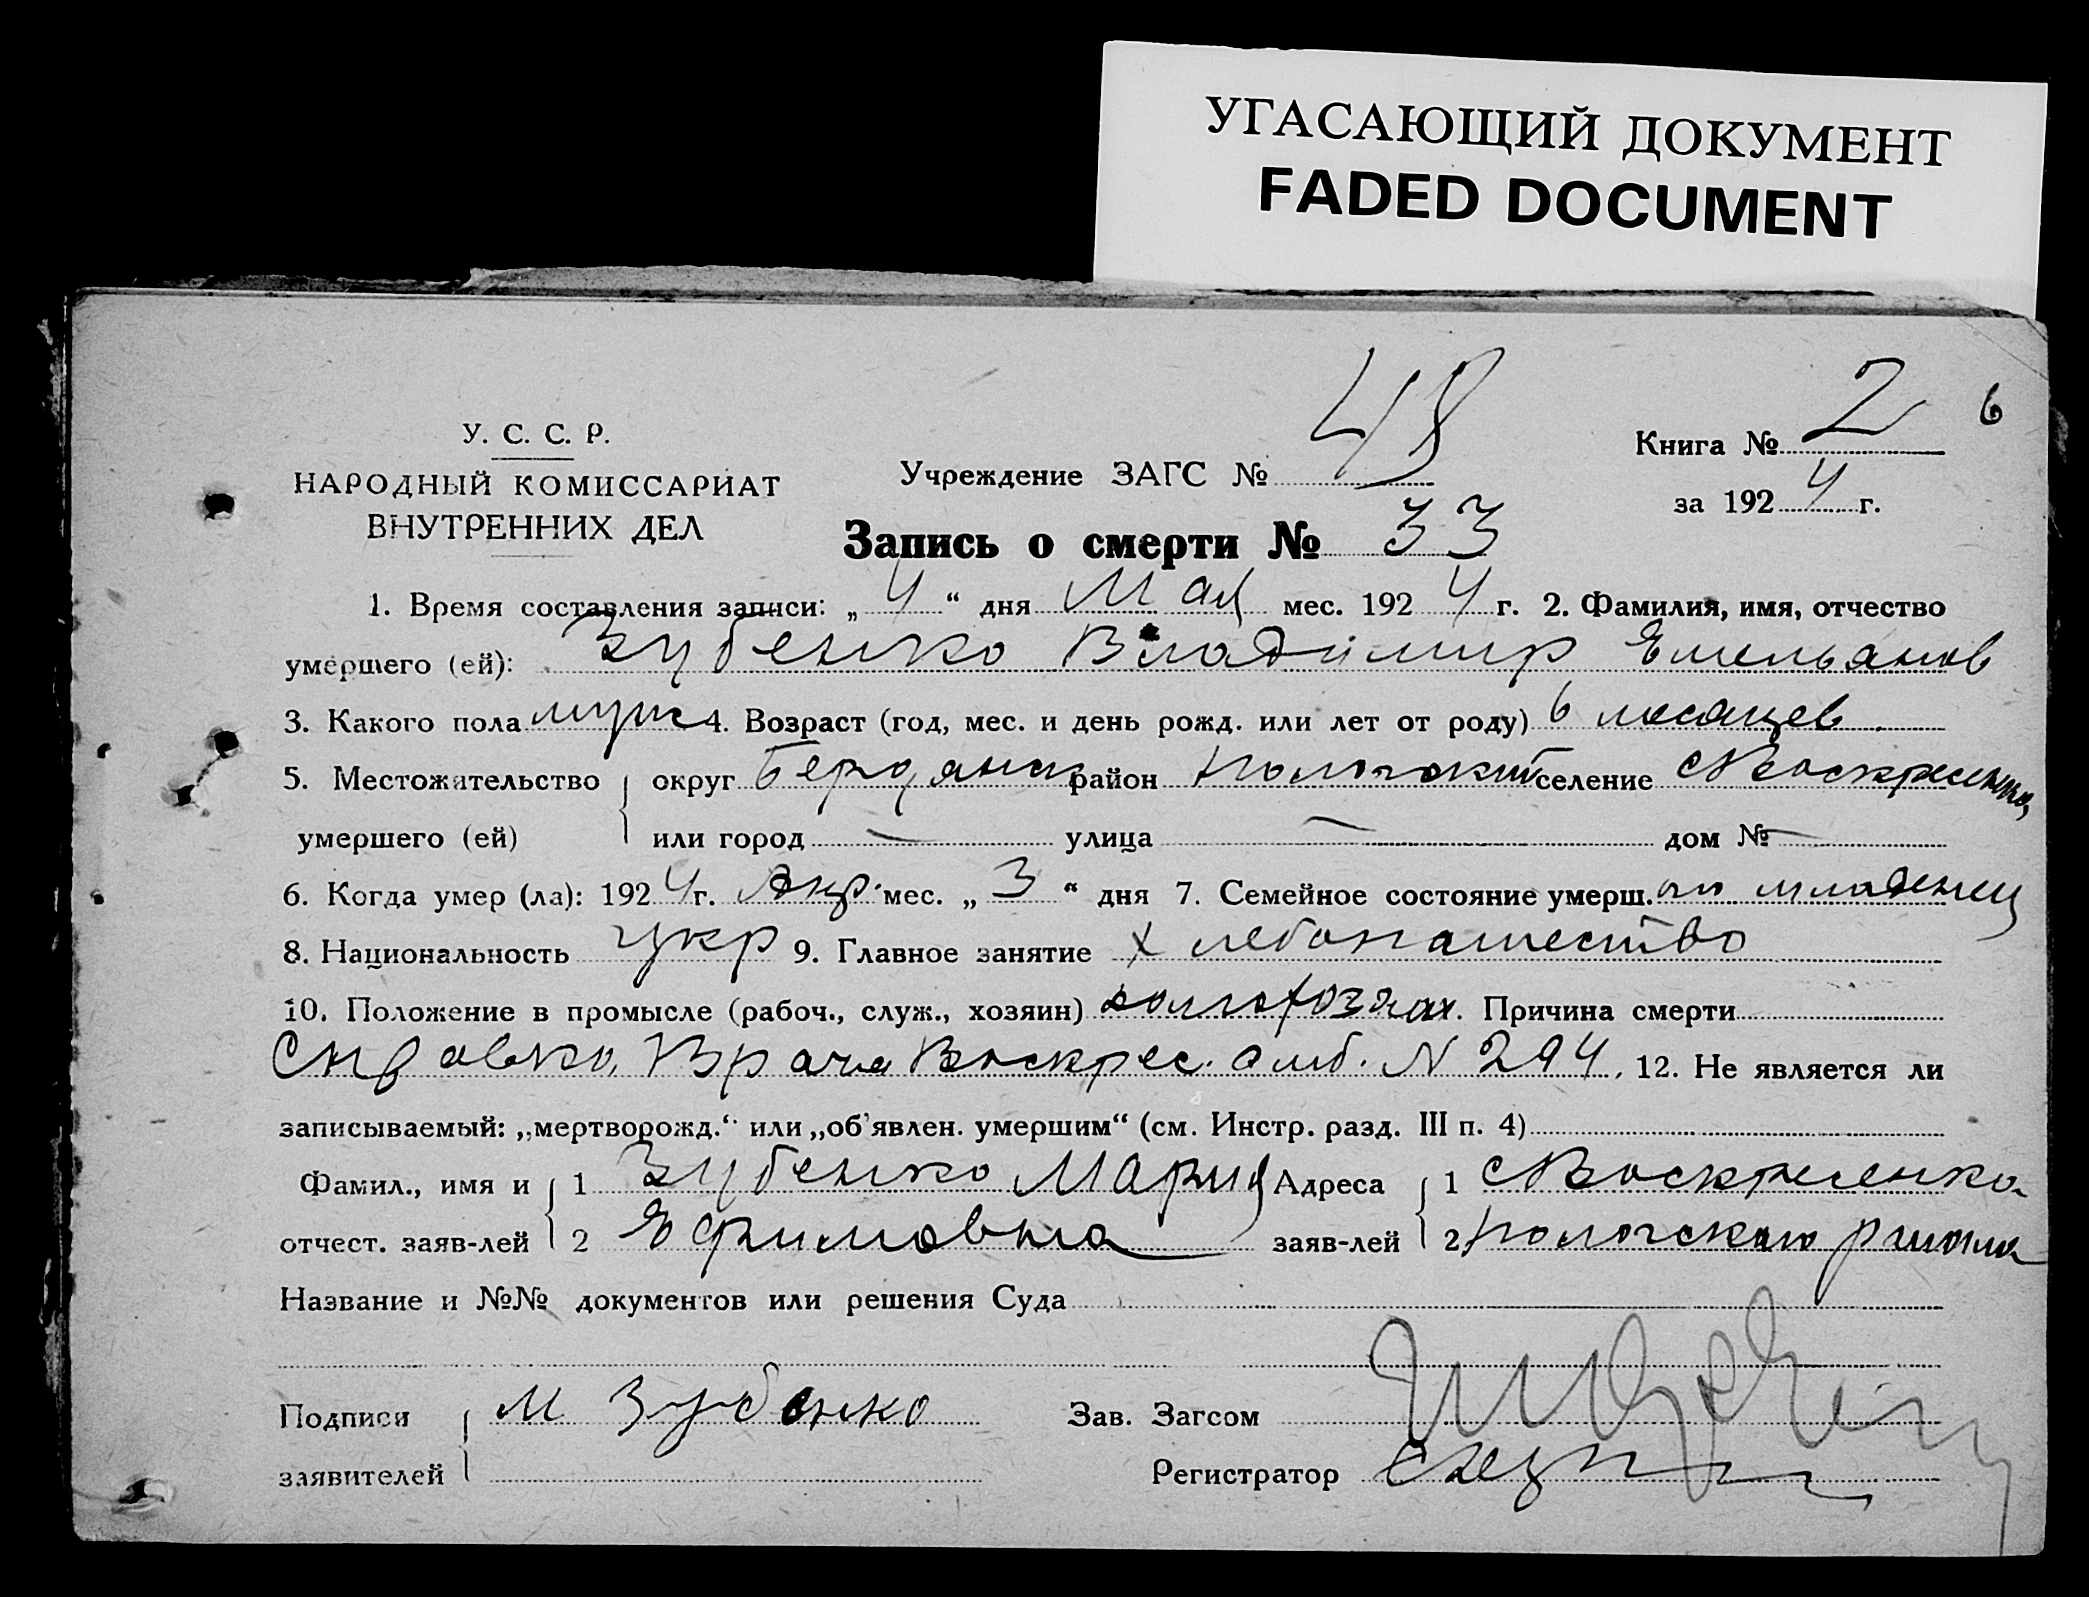 УГАСАЮЩИЙ ДОКУМЕНТ
FADED DOCUMENT
6
У. С. С. Р.
НАРОДНЫЙ КОМИССАРИАТ
ВНУТРЕННИХ ДЕЛ
Учреждение ЗАГС № 48
Книга № 2
за 1924 г.
Запись о смерти № 33
1. Время составления записи: „4“ дня Мая мес. 1924 г. 2. Фамилия, имя, отчество
умершего (ей): Зубенко Владимир Емельянов
3. Какого пола муж 4. Возраст (год, мес. и день рожд. или лет от роду) 6 месяцев
5. Местожительство округ Бердянск район Пологский селение с Воскресенка,
умершего (ей) или город — улица — дом № —
6. Когда умер (ла): 1924 г. Апр. мес. „3“ дня 7. Семейное состояние умерш. младенец
8. Национальность укр 9. Главное занятие хлебопашество
10. Положение в промысле (рабоч., служ., хозяин) . Причина смерти
Справка Врача Воскрес. амб. N 294. 12. Не является ли
записываемый: „мертворожд.“ или „об'явлен. умершим“ (см. Инстр. разд. III п. 4)
Фамил., имя и 1 Зубенко Мария Адреса 1 с Воскресенка
отчест. заяв-лей 2 Ефимовна заяв-лей 2 Пологского района
Название и №№ документов или решения Суда
Подписи М Зубенко Зав. Загсом
заявителей Регистратор